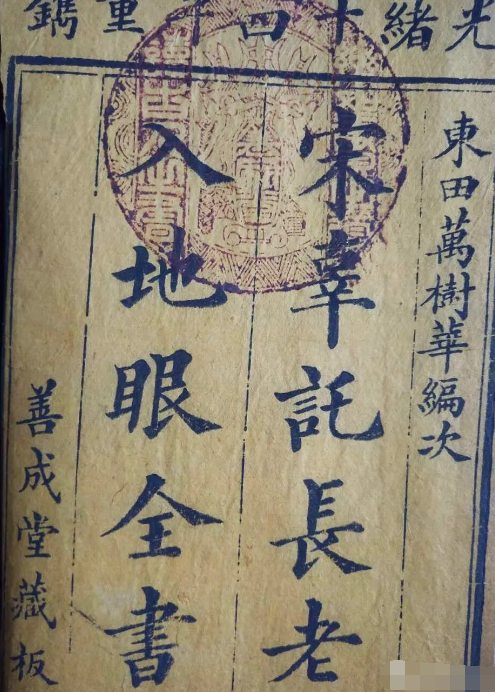 光緒十四年重鐫
東田萬樹華編次
宋辜託長老
入地眼全書
善成堂藏板